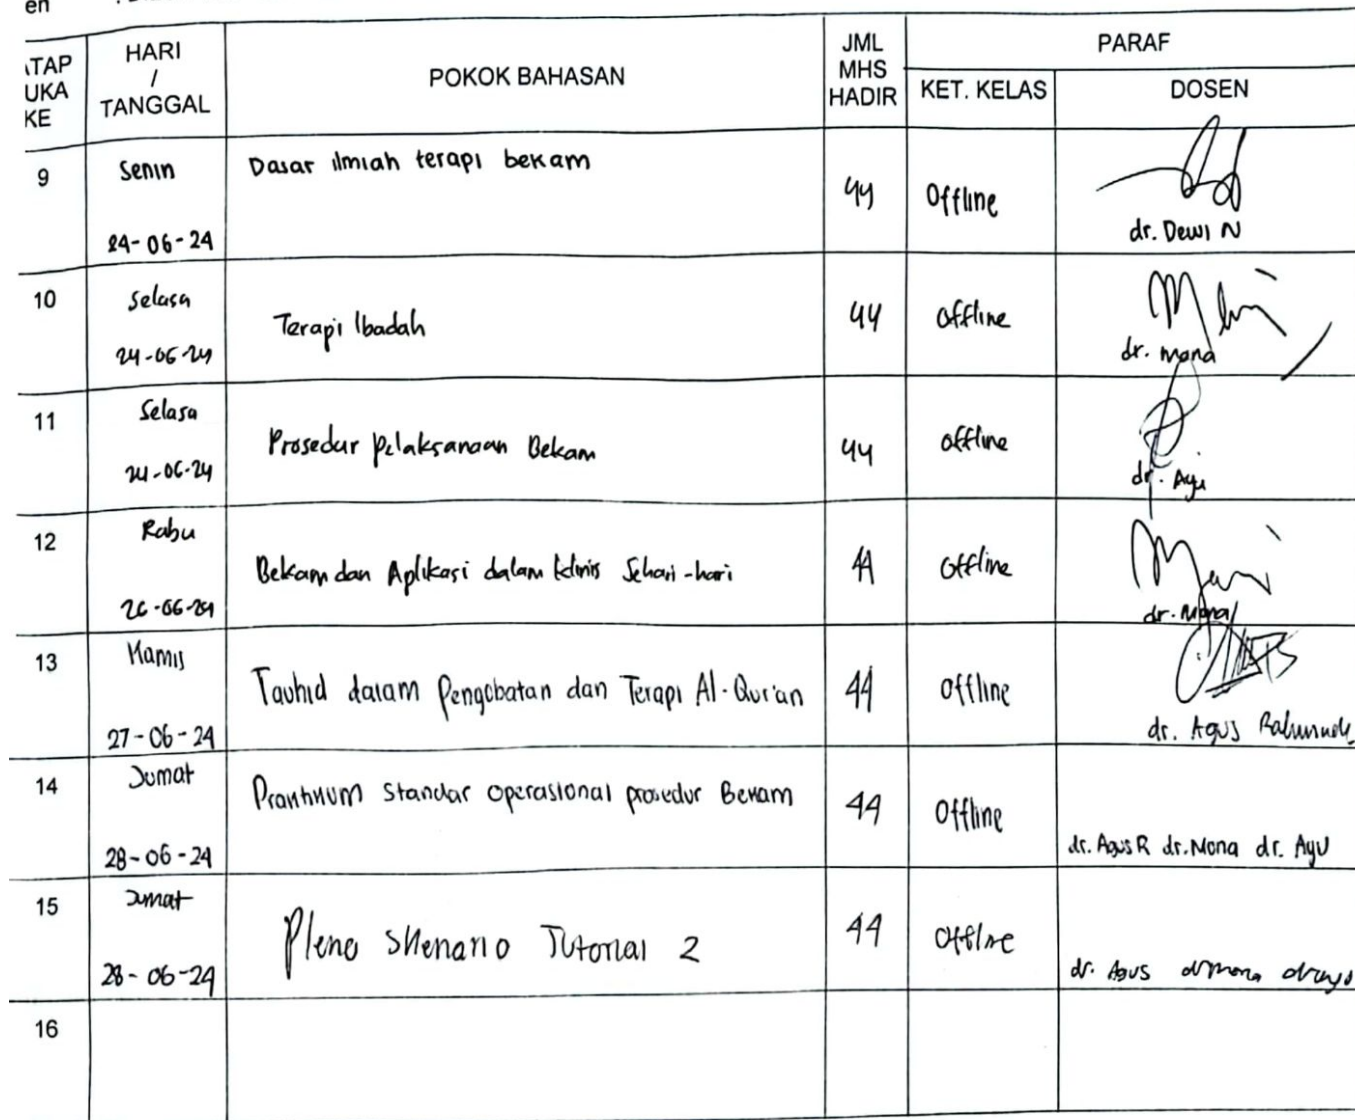 en
TAP UKA KE
HARI / TANGGAL
POKOK BAHASAN
JML MHS HADIR
PARAF
KET. KELAS
DOSEN
9
Senin
24-06-24
Dasar ilmiah terapi bekam
44
Offline
dr. Dewi N
10
Selasa
24-06-24
Terapi Ibadah
44
offline
dr. mona
11
Selasa
24-06-24
Prosedur pelaksanaan Bekam
44
offline
dr. Ayu
12
Rabu
26-06-24
Bekam dan Aplikasi dalam klinis Sehari-hari
44
Offline
dr. Mona
13
Kamis
27-06-24
Tauhid dalam Pengobatan dan Terapi Al-Qur'an
44
Offline
dr. Agus
14
Jumat
28-06-24
Praktikum Standar operasional prosedur Bekam
44
Offline
dr. Agus R dr. Mona dr. Ayu
15
Jumat
28-06-24
Pleno Skenario Tutorial 2
44
Offline
dr. Agus dr mona dr ayu
16